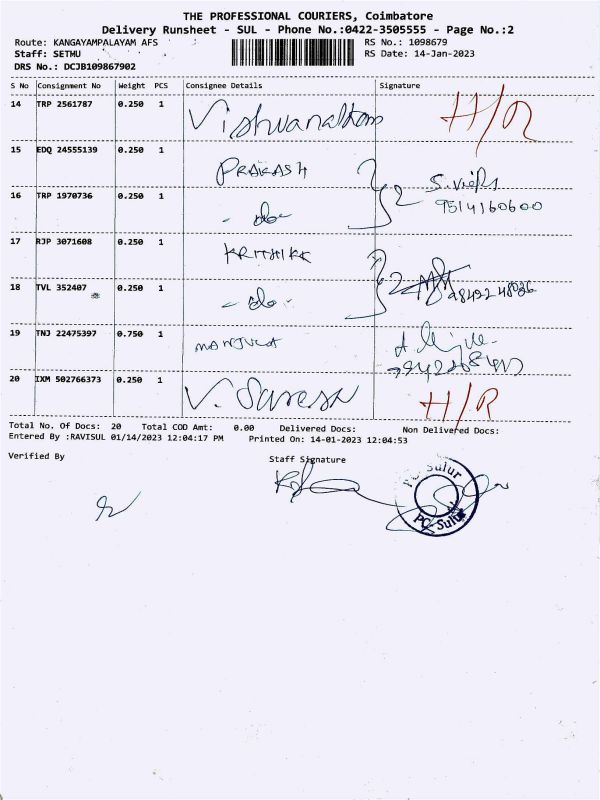 THE PROFESSIONAL COURIERS, Coimbatore
Delivery Runsheet - SUL - Phone No.:0422-3505555 - Page No.:2
Route: KANGAYAMPALAYAM AFS RS No.: 1098679
Staff: SETHU RS Date: 14-Jan-2023
DRS No.: DCJB109867902
S No Consignment No Weight PCS Consignee Details Signature
14 TRP 2561787 0.250 1 Vishwanathan H/R
15 EDQ 24555139 0.250 1 PRAKASH
16 TRP 1970736 0.250 1 - do - 2 9514160600
17 RJP 3071608 0.250 1 KRITHIKK
18 TVL 352407 0.250 1 - do - 2
19 TNJ 22475397 0.750 1 MANJULA
20 IXM 502766373 0.250 1 V. Suresh H/R
Total No. Of Docs: 20 Total COD Amt: 0.00 Delivered Docs: Non Delivered Docs:
Entered By :RAVISUL 01/14/2023 12:04:17 PM Printed On: 14-01-2023 12:04:53
Verified By Staff Signature
PC Sulur
PC-Sulur